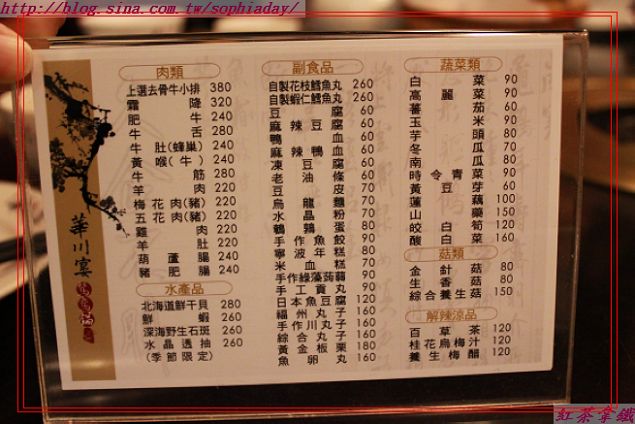 http://blog.sina.com.tw/sophiaday/
華川宴
鴛鴦鍋
肉類
上選去骨牛小排 380
霜降 320
肥牛 240
牛舌 280
牛肚(蜂巢) 240
黃喉(牛) 240
牛筋 280
羊肉 220
梅花肉(豬) 220
五花肉(豬) 220
雞肉 220
羊肚 220
葫蘆腸 240
豬肥腸 240
水產品
北海道鮮干貝 280
鮮蝦 260
深海野生石斑 280
水晶透抽 260
(季節限定)
副食品
自製花枝鱈魚丸 260
自製蝦仁鱈魚丸 260
豆腐 60
麻辣豆腐 60
鴨血 60
麻辣鴨血 60
凍豆腐 60
老油條 60
豆皮 70
烏龍麵 60
水晶粉 50
鵪鶉蛋 60
手作魚餃 90
寧波年糕 60
米血糕 70
手作綠藻蒟蒻 90
手工貢丸 90
日本魚豆腐 120
福州丸子 160
手作川丸子 160
綜合丸子 160
黃金板栗 180
魚卵丸 160
蔬菜類
白菜 90
高麗菜 90
蕃茄 60
玉米 90
芋頭 80
冬瓜 80
南瓜 80
時令青菜 90
黃豆芽 60
蓮藕 100
山藥 150
皎白筍 120
酸白菜 160
菇類
金針菇 80
生香菇 80
綜合養生菇 150
解辣涼品
百草茶 120
桂花烏梅汁 120
養生梅醋 120
紅茶拿鐵